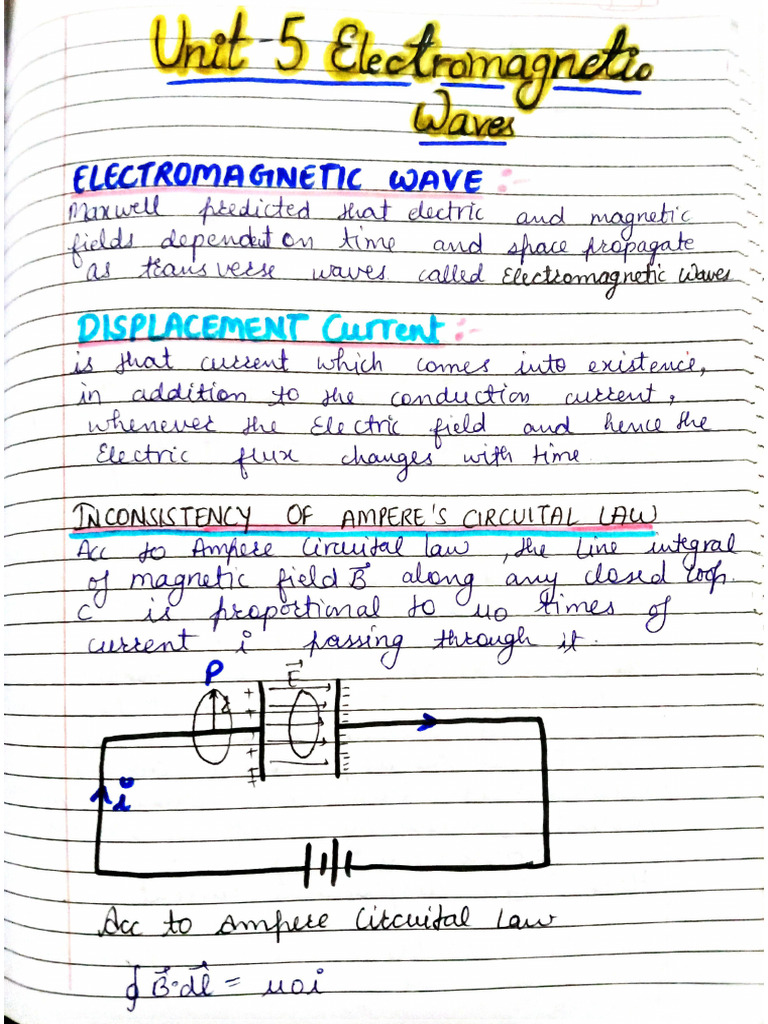 Unit-5 Electromagnetic
Waves
ELECTROMAGNETIC WAVE :-
Maxwell predicted that electric and magnetic
fields dependent on time and space propagate
as transverse waves called Electromagnetic Waves
DISPLACEMENT Current :-
is that current which comes into existence,
in addition to the conduction current,
whenever the Electric field and hence the
Electric flux changes with time.
INCONSISTENCY OF AMPERE'S CIRCUITAL LAW
Acc to Ampere Circuital law, the Line integral
of magnetic field B⃗ along any closed loop.
C is proportional to μ0 times of
current i passing through it.
P
E⃗
+
+
+
+
+
i
Acc to Ampere Circuital Law
∮ B⃗·dl⃗ = μ0i